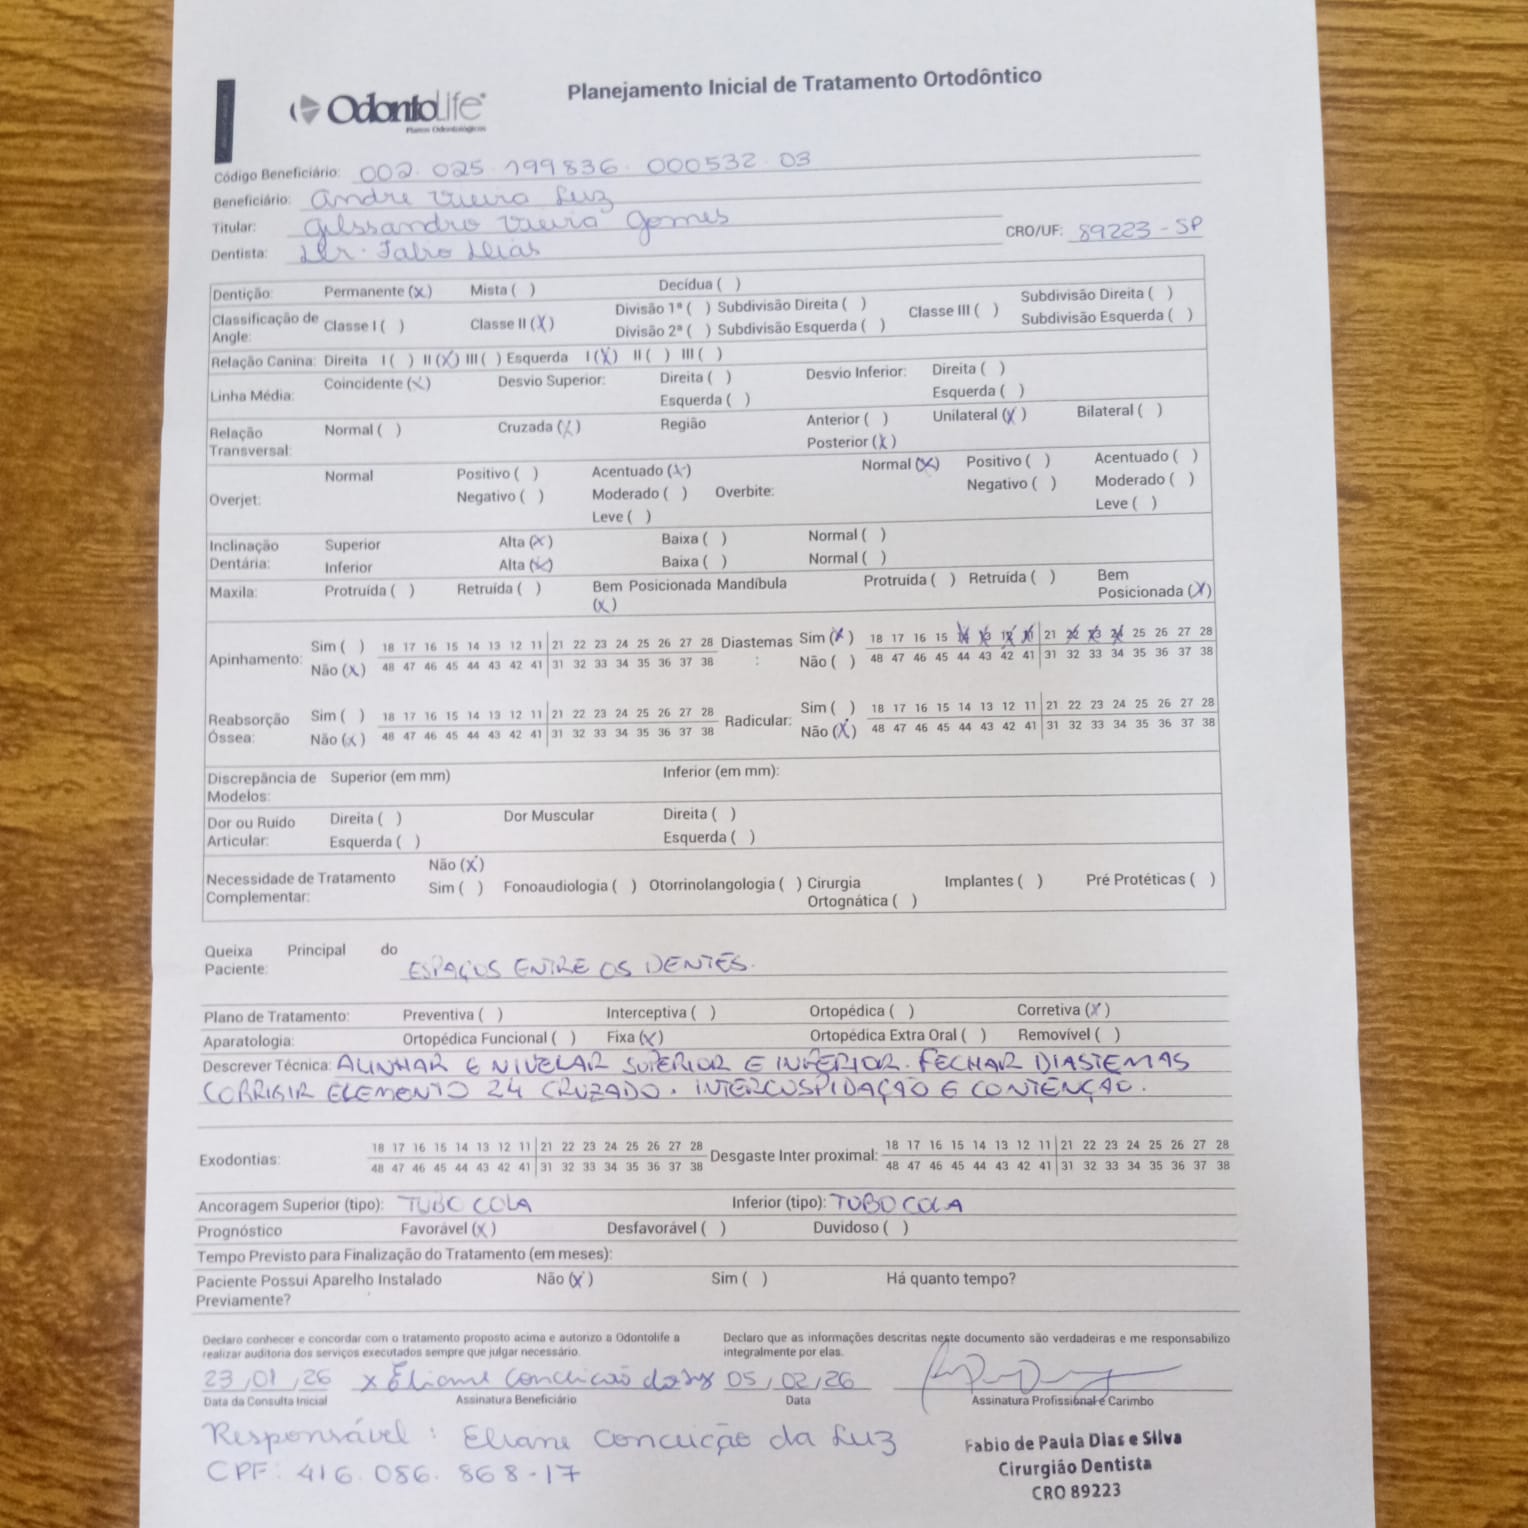 Planejamento Inicial de Tratamento Ortodôntico
OdontoLife
Planos Odontológicos
Código Beneficiário: 002.025.199836.000532.03
Beneficiário: Andre Vieira Luz
Titular: Gelssandro Vieira Gomes
Dentista: Dr. Fabio Dias CRO/UF: 89223-SP
Dentição: Permanente (x) Mista ( ) Decídua ( )
Classificação de Angle: Classe I ( ) Classe II (X) Divisão 1ª ( ) Subdivisão Direita ( ) Classe III ( ) Subdivisão Direita ( )
Divisão 2ª ( ) Subdivisão Esquerda ( ) Subdivisão Esquerda ( )
Relação Canina: Direita I ( ) II (X) III ( ) Esquerda I (X) II ( ) III ( )
Linha Média: Coincidente (x) Desvio Superior: Direita ( ) Desvio Inferior: Direita ( )
Esquerda ( ) Esquerda ( )
Relação Transversal: Normal ( ) Cruzada (X) Região Anterior ( ) Unilateral (X) Bilateral ( )
Posterior (X)
Overjet: Normal Positivo ( ) Acentuado (X) Overbite: Normal (X) Positivo ( ) Acentuado ( )
Negativo ( ) Moderado ( ) Negativo ( ) Moderado ( )
Leve ( ) Leve ( )
Inclinação Dentária: Superior Alta (x) Baixa ( ) Normal ( )
Inferior Alta (x) Baixa ( ) Normal ( )
Maxila: Protruída ( ) Retruída ( ) Bem Posicionada (X) Mandíbula Protruída ( ) Retruída ( ) Bem Posicionada (X)
Apinhamento: Sim ( ) 18 17 16 15 14 13 12 11 21 22 23 24 25 26 27 28 Diastemas: Sim (X) 18 17 16 15 14 13 12 11 21 22 23 24 25 26 27 28
Não (X) 48 47 46 45 44 43 42 41 31 32 33 34 35 36 37 38 Não ( ) 48 47 46 45 44 43 42 41 31 32 33 34 35 36 37 38
Reabsorção Óssea: Sim ( ) 18 17 16 15 14 13 12 11 21 22 23 24 25 26 27 28 Radicular: Sim ( ) 18 17 16 15 14 13 12 11 21 22 23 24 25 26 27 28
Não (X) 48 47 46 45 44 43 42 41 31 32 33 34 35 36 37 38 Não (X) 48 47 46 45 44 43 42 41 31 32 33 34 35 36 37 38
Discrepância de Modelos: Superior (em mm) Inferior (em mm):
Dor ou Ruído Articular: Direita ( ) Dor Muscular Direita ( )
Esquerda ( ) Esquerda ( )
Necessidade de Tratamento Complementar: Não (X)
Sim ( ) Fonoaudiologia ( ) Otorrinolangologia ( ) Cirurgia Ortognática ( ) Implantes ( ) Pré Protéticas ( )
Queixa Principal do Paciente: ESPAÇOS ENTRE OS DENTES.
Plano de Tratamento: Preventiva ( ) Interceptiva ( ) Ortopédica ( ) Corretiva (X)
Aparatologia: Ortopédica Funcional ( ) Fixa (X) Ortopédica Extra Oral ( ) Removível ( )
Descrever Técnica: ALINHAR E NIVELAR SUPERIOR E INFERIOR. FECHAR DIASTEMAS
CORRIGIR ELEMENTO 24 CRUZADO. INTERCUSPIDAÇÃO E CONTENÇÃO.
Exodontias: 18 17 16 15 14 13 12 11 21 22 23 24 25 26 27 28 Desgaste Inter proximal: 18 17 16 15 14 13 12 11 21 22 23 24 25 26 27 28
48 47 46 45 44 43 42 41 31 32 33 34 35 36 37 38 48 47 46 45 44 43 42 41 31 32 33 34 35 36 37 38
Ancoragem Superior (tipo): TUBO COLA Inferior (tipo): TUBO COLA
Prognóstico Favorável (X) Desfavorável ( ) Duvidoso ( )
Tempo Previsto para Finalização do Tratamento (em meses):
Paciente Possui Aparelho Instalado Previamente? Não (X) Sim ( ) Há quanto tempo?
Declaro conhecer e concordar com o tratamento proposto acima e autorizo a Odontolife a realizar auditoria dos serviços executados sempre que julgar necessário.
Declaro que as informações descritas neste documento são verdadeiras e me responsabilizo integralmente por elas.
23/01/26 x Eliane Conceição da Luz 05/02/26
Data da Consulta Inicial Assinatura Beneficiário Data Assinatura Profissional e Carimbo
Responsável: Eliane Conceição da Luz
CPF: 416.086.868-17
Fabio de Paula Dias e Silva
Cirurgião Dentista
CRO 89223